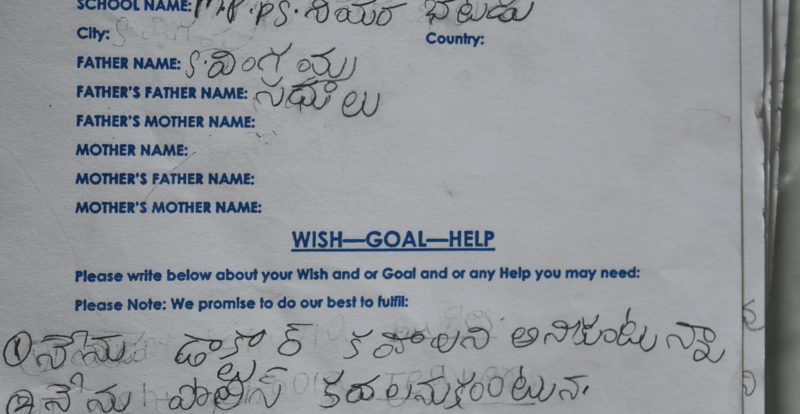 SCHOOL NAME: M.P.P.S.
City:
Country:
FATHER NAME: S. లింగయ్య
FATHER'S FATHER NAME: సాధులు
FATHER'S MOTHER NAME:
MOTHER NAME:
MOTHER'S FATHER NAME:
MOTHER'S MOTHER NAME:
WISH—GOAL—HELP
Please write below about your Wish and or Goal and or any Help you may need:
Please Note: We promise to do our best to fulfil:
① నేను డాక్టర్ కావాలని అనికుంటున్నా
② నేను పోలీస్